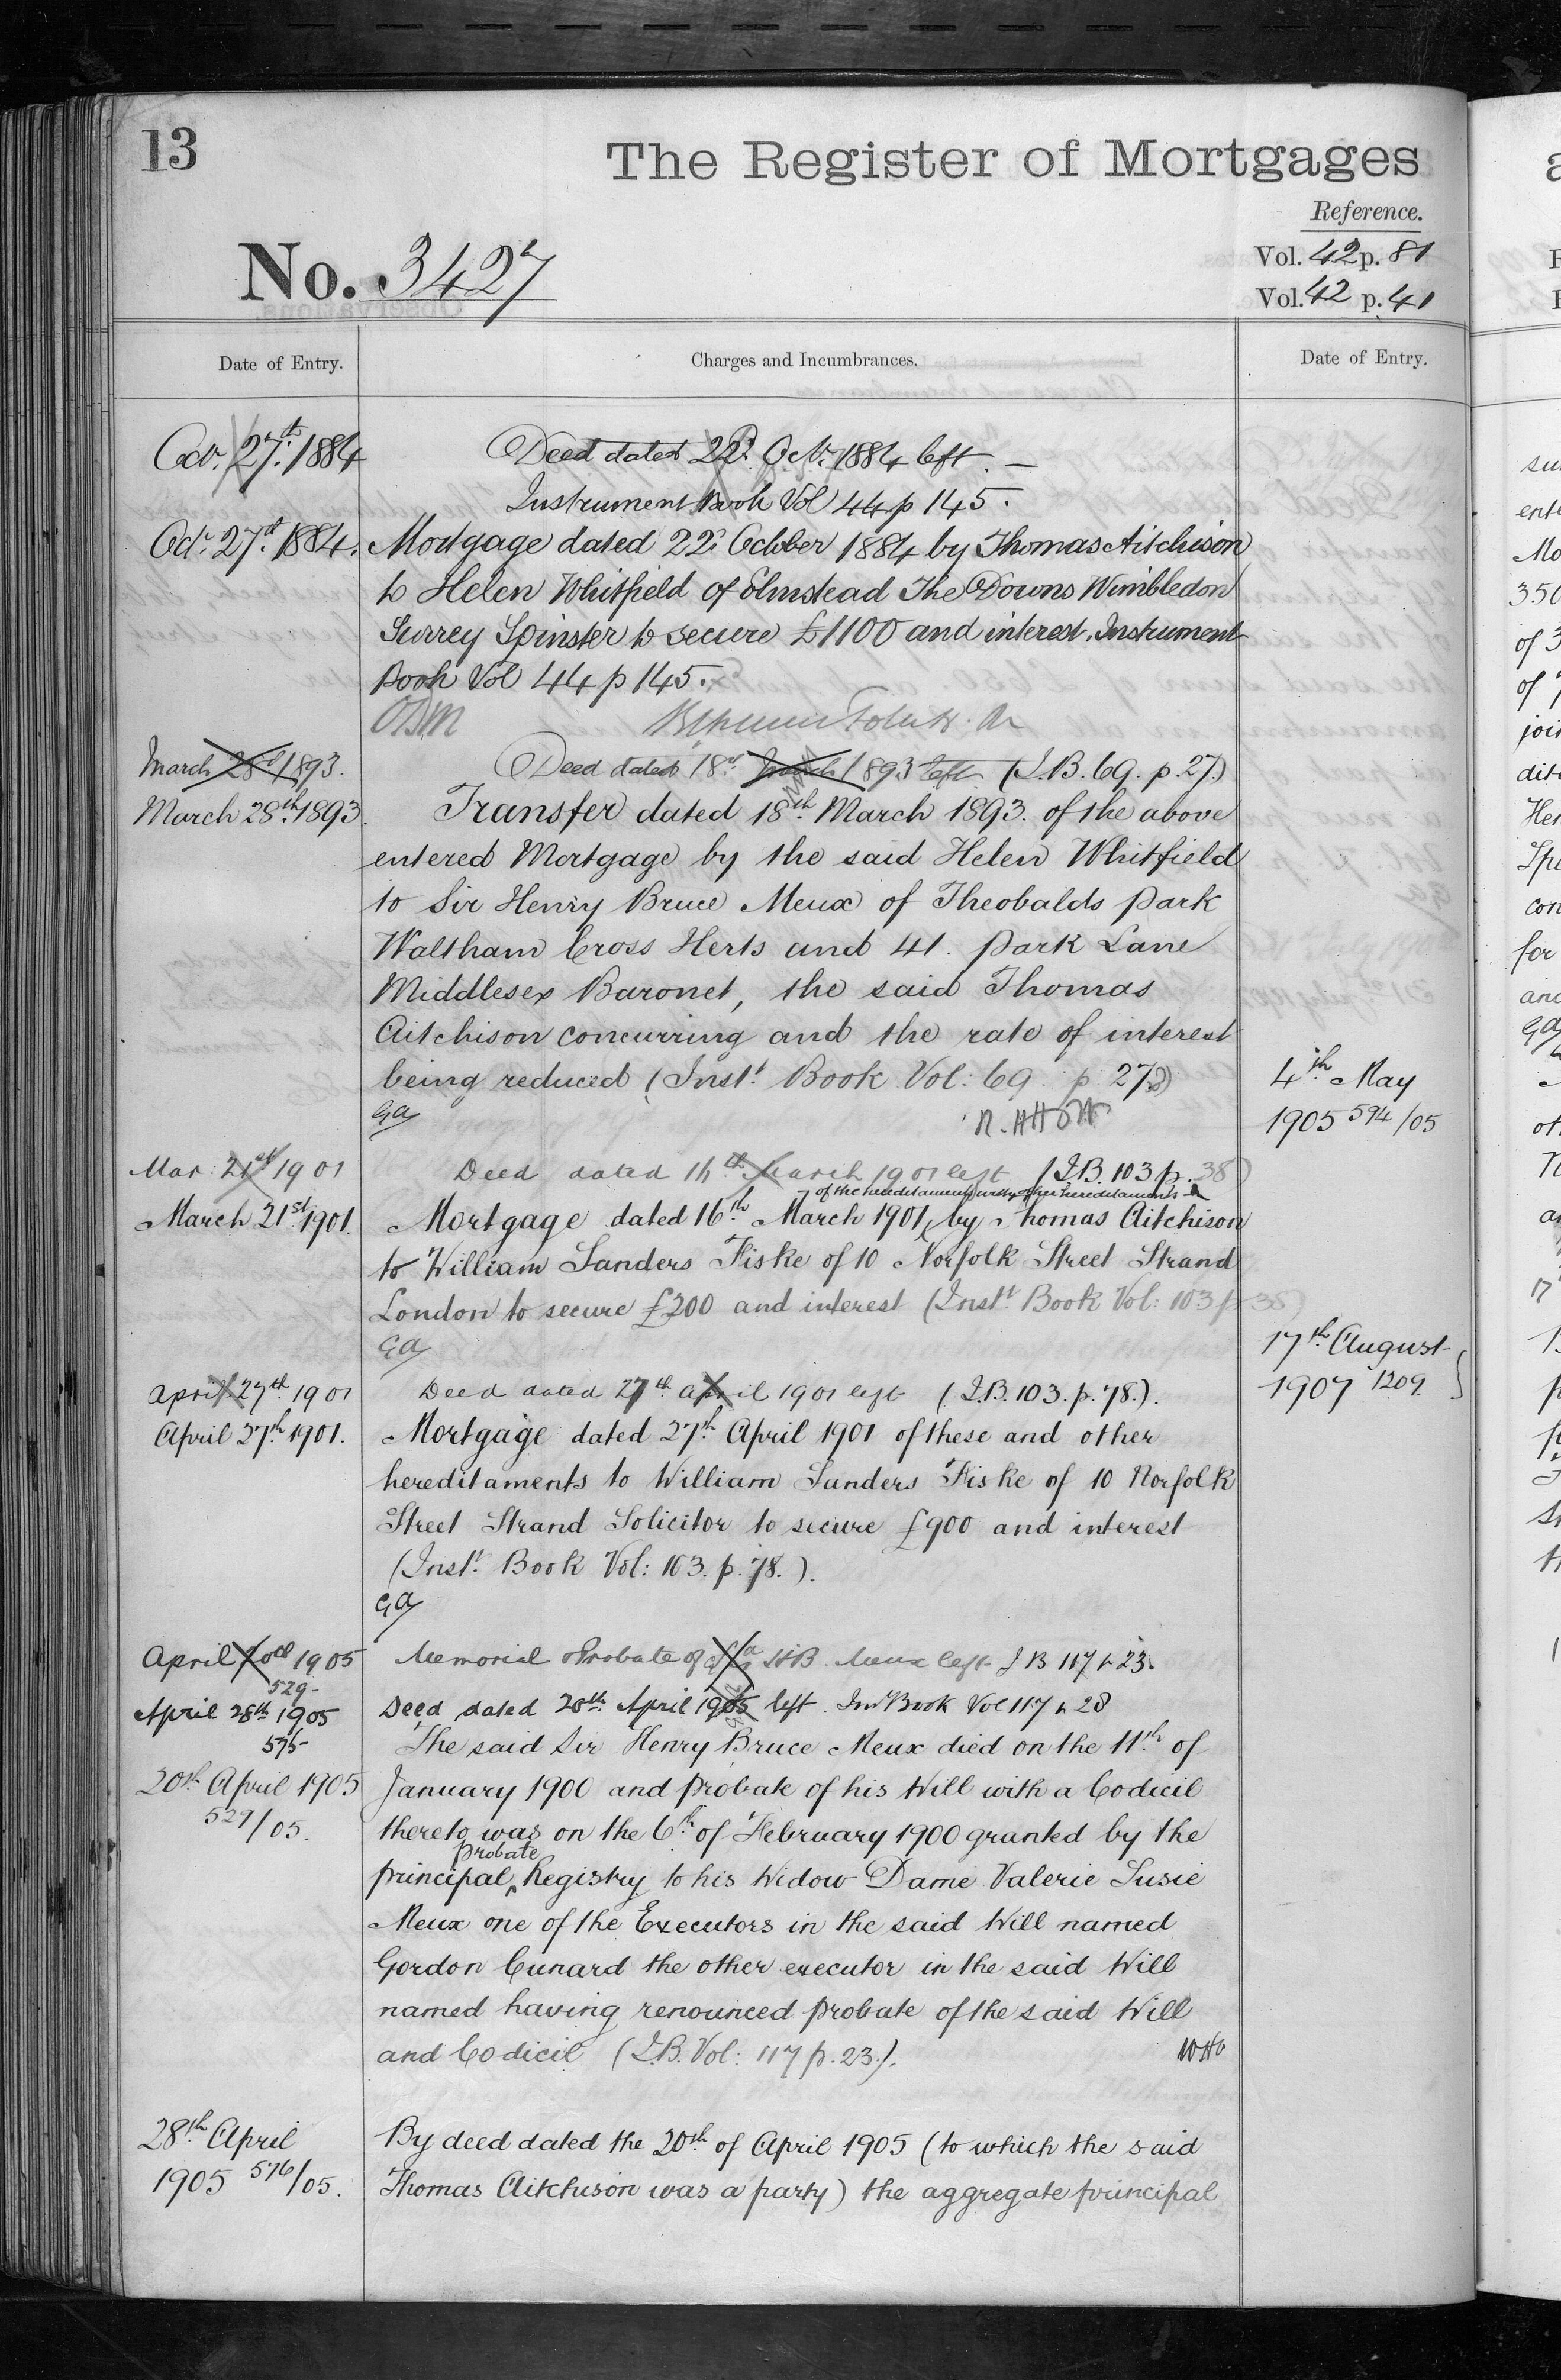 13
The Register of Mortgages
Reference.
No. 3427
Vol. 42 p. 81
Vol. 42 p. 41
Date of Entry.
Charges and Incumbrances.
Date of Entry.
Oct. 27th 1884
Deed dated 22d Octr. 1884 left. —
Instrument Book Vol 44 p 145.
Octr. 27th 1884.
Mortgage dated 22d October 1884 by Thomas Aitchison
to Helen Whitfield of Elmstead The Downs Wimbledon
Surrey Spinster to secure £1100 and interest. Instrument
Book Vol 44 p 145.
March 28th 1893.
Deed dated 18th March 1893 left (I.B. 69. p. 27.)
March 28th 1893.
Transfer dated 18th March 1893. of the above
entered Mortgage by the said Helen Whitfield
to Sir Henry Bruce Meux of Theobalds Park
Waltham Cross Herts and 41. Park Lane
Middlesex Baronet, the said Thomas
Aitchison concurring and the rate of interest
being reduced (Inst. Book Vol: 69 p 27.)
GA
4th May
1905 594/05
Mar: 21st 1901
Deed dated 16th March 1901 left (I.B. 103 p. 38)
of the hereditaments with other hereditaments
March 21st 1901.
Mortgage dated 16th March 1901, by Thomas Aitchison
to William Sanders Fiske of 10 Norfolk Street Strand
London to secure £200 and interest (Inst. Book Vol: 103 p 38)
GA
17th August
1907 1209
April 27th 1901
Deed dated 27th April 1901 left (I.B. 103. p. 78.).
April 27th 1901.
Mortgage dated 27th April 1901 of these and other
hereditaments to William Sanders Fiske of 10 Norfolk
Street Strand Solicitor to secure £900 and interest
(Inst. Book Vol: 103. p. 78.).
GA
April 20th 1905
529
Memorial Probate of Sir H B. Meux left I B 117 p 23.
April 28th 1905
576
Deed dated 20th April 1905 left. Inst Book Vol 117 p 28
The said Sir Henry Bruce Meux died on the 11th of
20th April 1905
529/05.
January 1900 and probate of his Will with a Codicil
thereto was on the 6th of February 1900 granted by the
probate
principal Registry to his Widow Dame Valerie Susie
Meux one of the Executors in the said Will named
Gordon Cunard the other executor in the said Will
named having renounced probate of the said Will
and Codicil (I.B. Vol: 117 p. 23.).
28th April
1905 576/05.
By deed dated the 20th of April 1905 (to which the said
Thomas Aitchison was a party) the aggregate principal